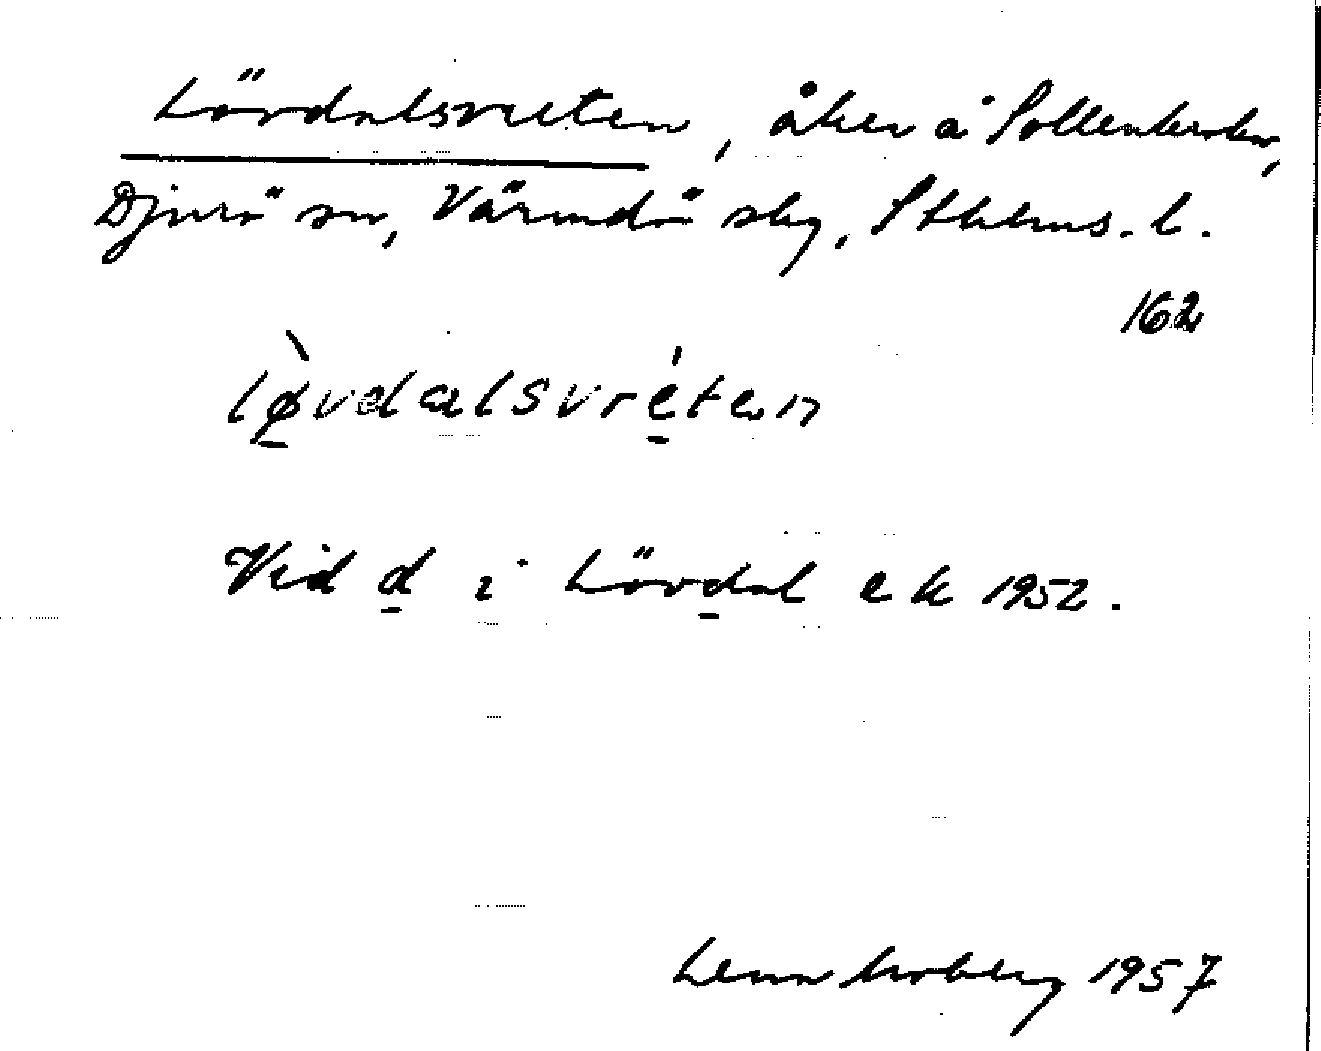 Lövdalsvreten, åker å Sollenkroka,
Djurö sn, Värmdö skg, Sthlms. l.
162
lø̀vdalsvréten
Vid d i Lövdal e k 1952.
Lenn Moberg 1957